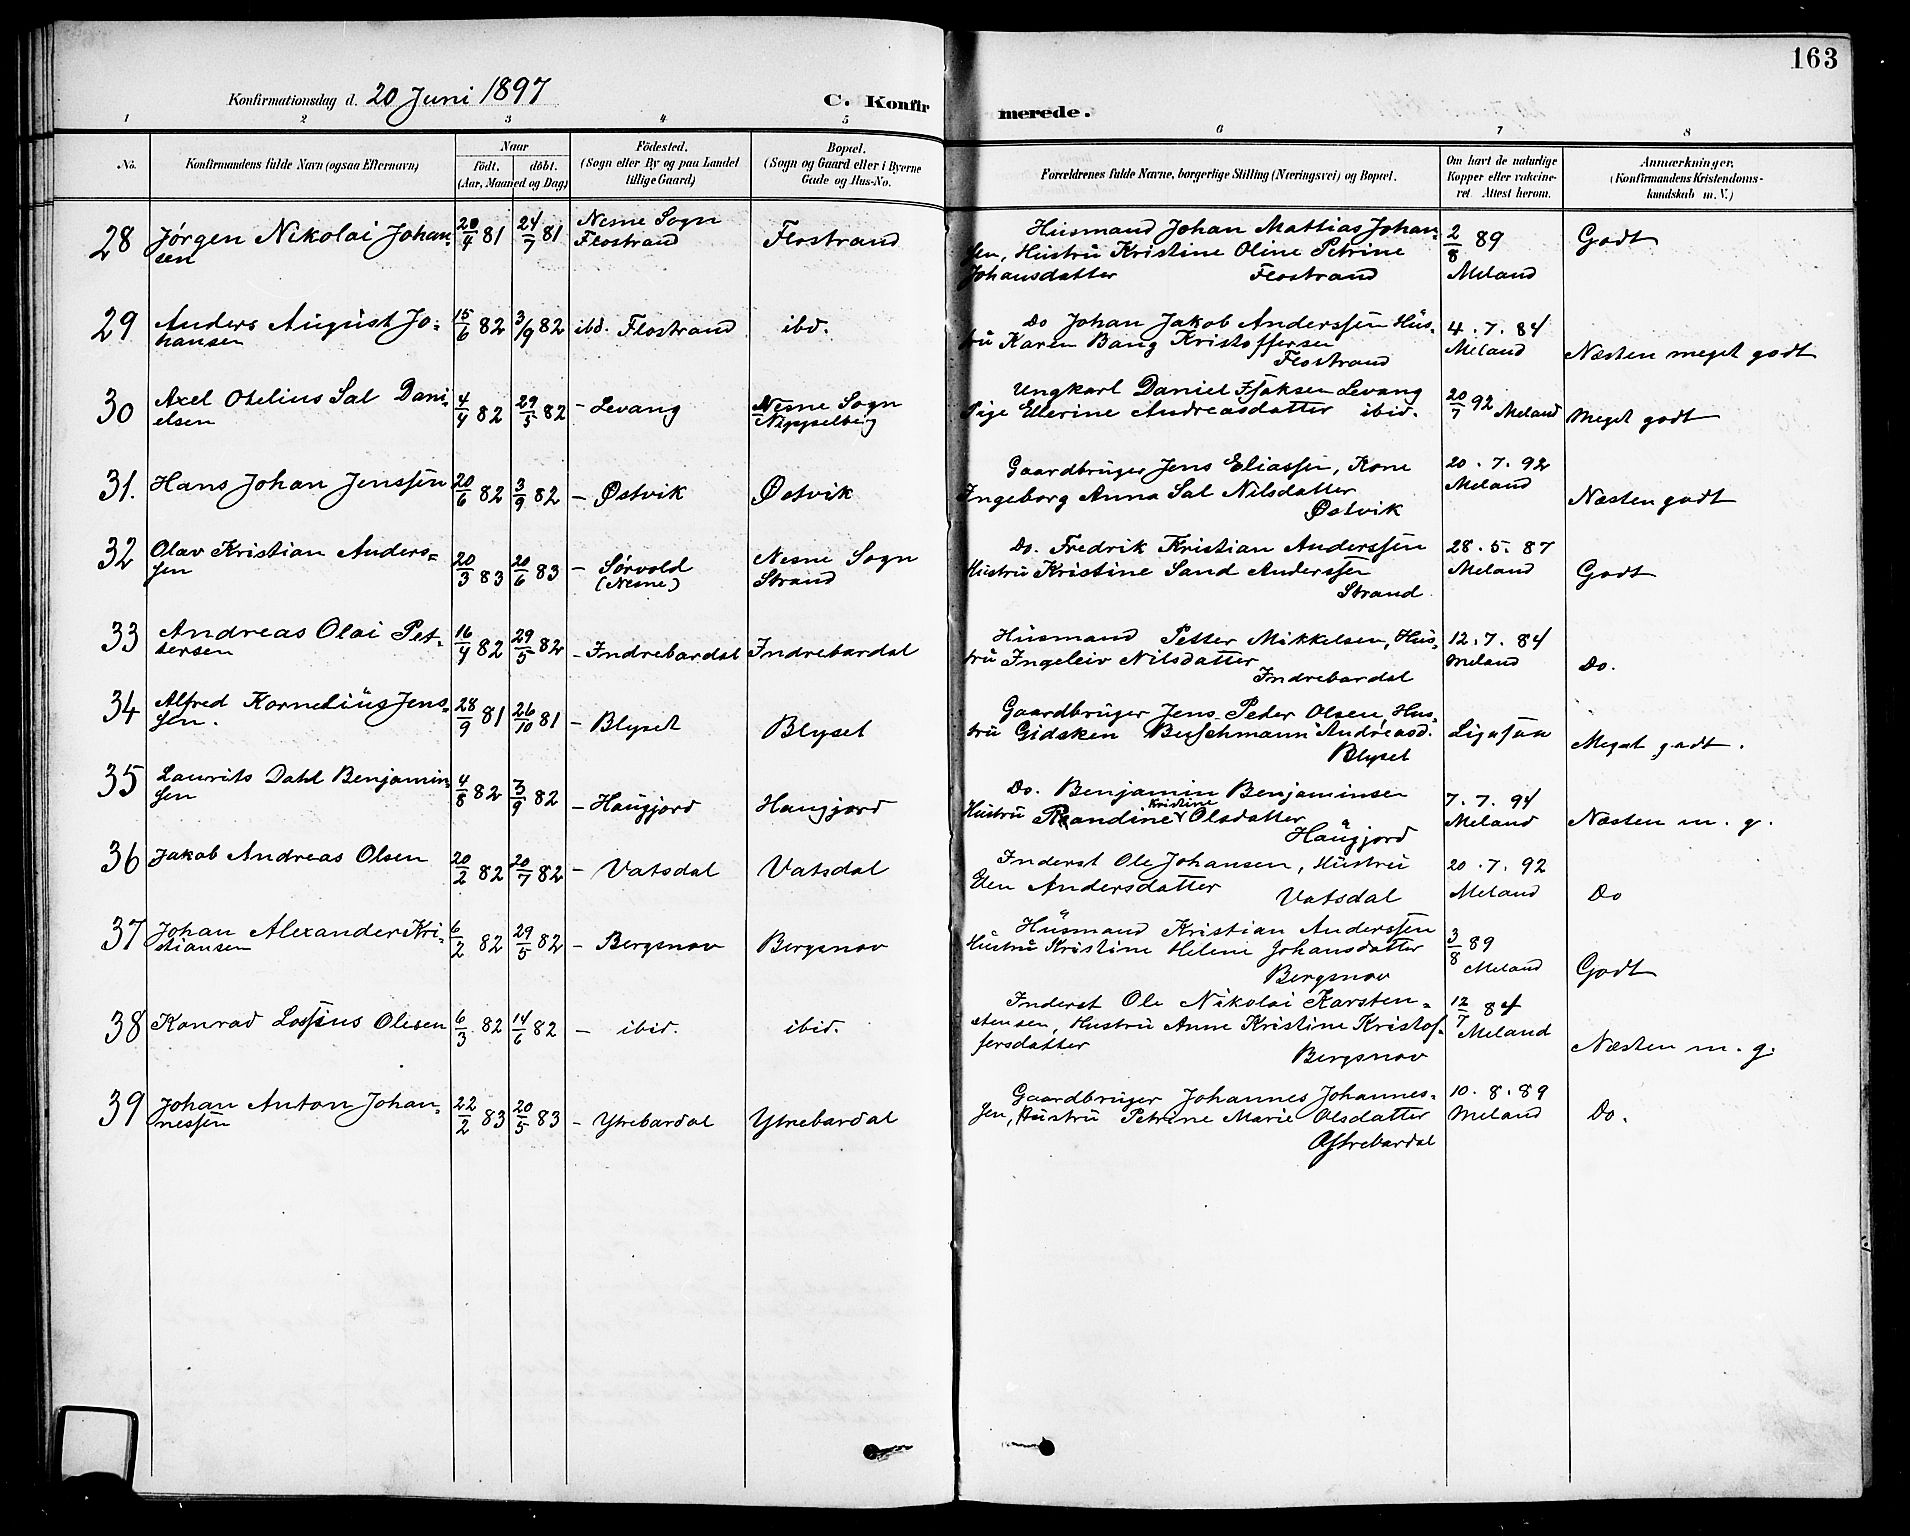 163
Konfirmationsdag d. 20 Juni 1897
C. Konfirmerede.
1 2 3 4 5 6 7 8
No. Konfirmandens fulde Navn (ogsaa Efternavn) Naar födt, döbt. (Aar, Maaned og Dag) Födested. (Sogn eller By og paa Landet tillige Gaard) Bopæl. (Sogn og Gaard eller i Byerne Gade og Hus-No. Forældrenes fulde Navne, borgerlige Stilling (Næringsvei) og Bopæl. Om havt de naturlige Kopper eller vakcineret. Attest herom. Anmærkninger, (Konfirmandens Kristendomskundskab m. V.)
28 Jørgen Nikolai Johan- 20/4 81 24/7 81 Nesne Sogn Flostrand Flostrand Husmand Johan Mattias Johan- 2/8 89 Godt
sen sen, Hustru Kristine Oline Petrine
Johansdatter Flostrand Meland
29 Anders August Jo- 15/6 82 3/9 82 ibd. Flostrand ibd. Do Johan Jakob Anderssen Hus- 4.7.84
hansen tru Karen Bang Kristoffersen Meland Næsten meget godt
Flostrand
30 Axel Otelius Sal Dani- 4/4 82 29/5 82 - Levang Nesne Sogn Ungkarl Daniel Isaksen Levang 20/7 92 Meland
elsen Nippelberg Pige Ellerine Andreasdatter ibid. Meget godt
31. Hans Johan Jenssen 20/6 82 3/9 82 - Østvik Østvik Gaardbruger Jens Eliassen, Kone 20.7.92
Ingeborg Anna Sal Nilsdatter Meland Næsten godt
Østvik
32 Olav Kristian Anders= 20/3 83 20/6 83 - Sørvold Nesne Sogn Do. Fredrik Kristian Anderssen 28.5.87
sen (Nesne) Strand Hustru Kristine Sand Anderssen Meland Godt
Strand
33 Andreas Olai Pet- 16/4 82 29/5 82 - Indrebardal Indrebardal Husmand Petter Mikkelsen, Hus- 12.7.84
tersen tru Ingeleiv Nilsdatter Meland Do.
Indrebardal
34 Alfred Kornelius Jens- 28/9 81 26/10 81 - Blyset Blyset Gaardbruger Jens Peder Olsen, Hus-
sen. tru Gidsken Buschmann Andreasd. Ligasaa Meget godt.
Blyset
35 Laurits Dahl Benjamin- 4/8 82 3/9 82 - Haugjord Haugjord Do. Benjamin Benjaminsen 7.7.94
sen Hustru Randine Kristine Olsdatter Meland Næsten m. g.
Haugjord
36 Jakob Andreas Olsen 20/2 82 20/7 82 - Vatsdal Vatsdal Inderst Ole Johansen, Hustru 20.7.92
Elen Andersdatter Vatsdal Meland Do
37 Johan Alexander Kri- 6/2 82 29/5 82 - Bergsnov Bergsnov Husmand Kristian Anderssen 3/8 89
stiansen Hustru Kristine Helene Johansdatter Meland Godt
Bergsnov
38 Konrad Lossius Olesen 6/3 82 14/6 82 - ibid. ibid. Inderst Ole Nikolai Karsten- 12/7 84
stensen, Hustru Anne Kristine Kristof- Meland
fersdatter Bergsnov Næsten m. g.
39 Johan Anton Johan- 22/2 83 20/5 83 - Ytrebardal Ytrebardal Gaardbruger Johannes Johannes- 10.8.89
nessen sen, Hustru Petrine Marie Olsdatter Meland Do.